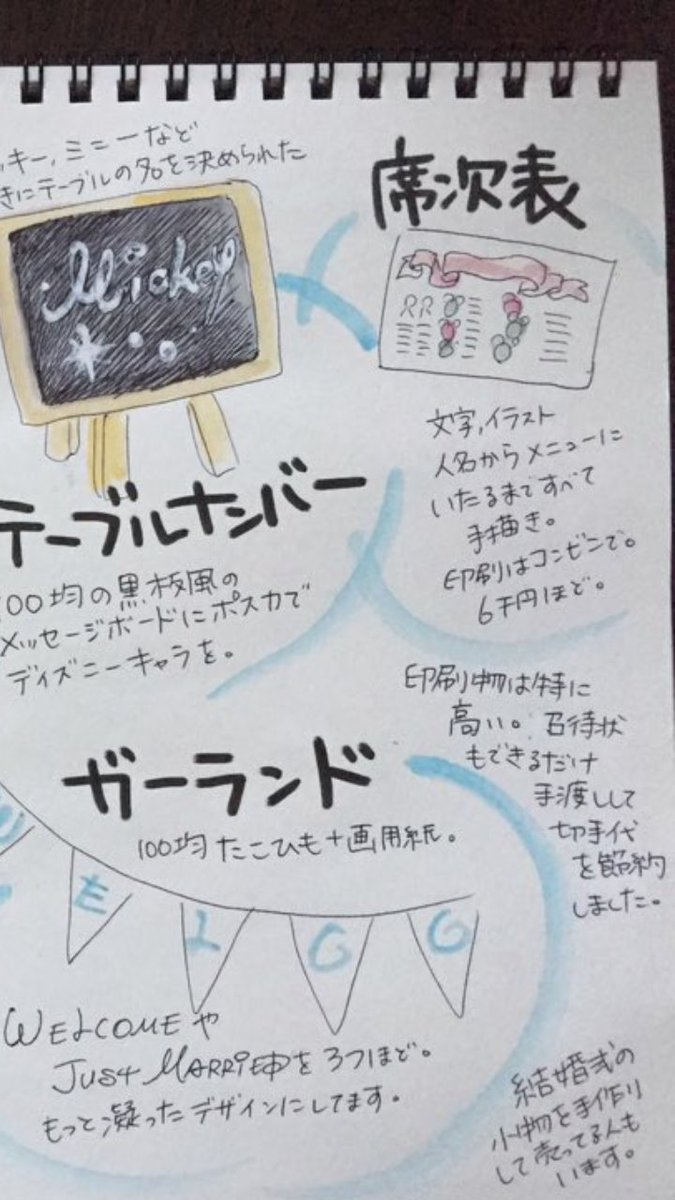 ッキー,ミニーなど
きにテーブルの名を決められた
Mickey
テーブルナンバー
100均の黒板風の
メッセージボードにポスカで
ディズニーキャラを。
席次表
RR
文字,イラスト
人名からメニューに
いたるまですべて
手描き。
印刷はコンビンで。
6千円ほど。
印刷物は特に
高い。召待状
もできるだけ
手渡しして
切手代
を節約
しました。
ガーランド
100均たこひも+画用紙。
E
L
WELCOMEや
JUST MARRIEDを3つほど。
もっと凝ったデザインにしてます。
結婚式の
小物を手作り
して売ってる人も
います。